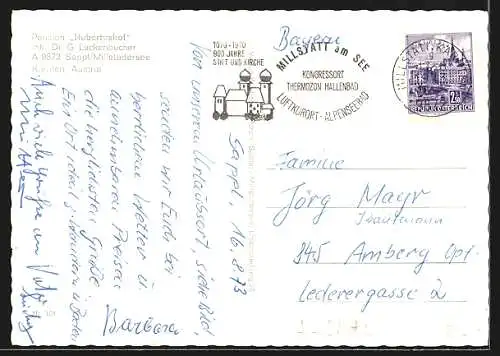 Pension "Hubertushof"
Inh. Dr. G. Lackenbucher
A 9872 Sappl/Millstättersee
Kärnten, Austria
1070-1970
900 JAHRE
STIFT UND KIRCHE
MILLSTATT am SEE
KONGRESSORT
THERMOZON HALLENBAD
LUFTKURORT - ALPENSEEBAD
Bayern
Sappl, 16.8.73
Von unserem Urlaubsort, siehe Bild,
senden wir Euch bei
herrlichem Wetter u.
annehmbaren Preisen
die herzlichsten Grüße
Ein Ort ideal z.
Barbara
Auch viele Grüße an
Familie
Jörg Mayr
845 Amberg Opf.
Lederergasse 2